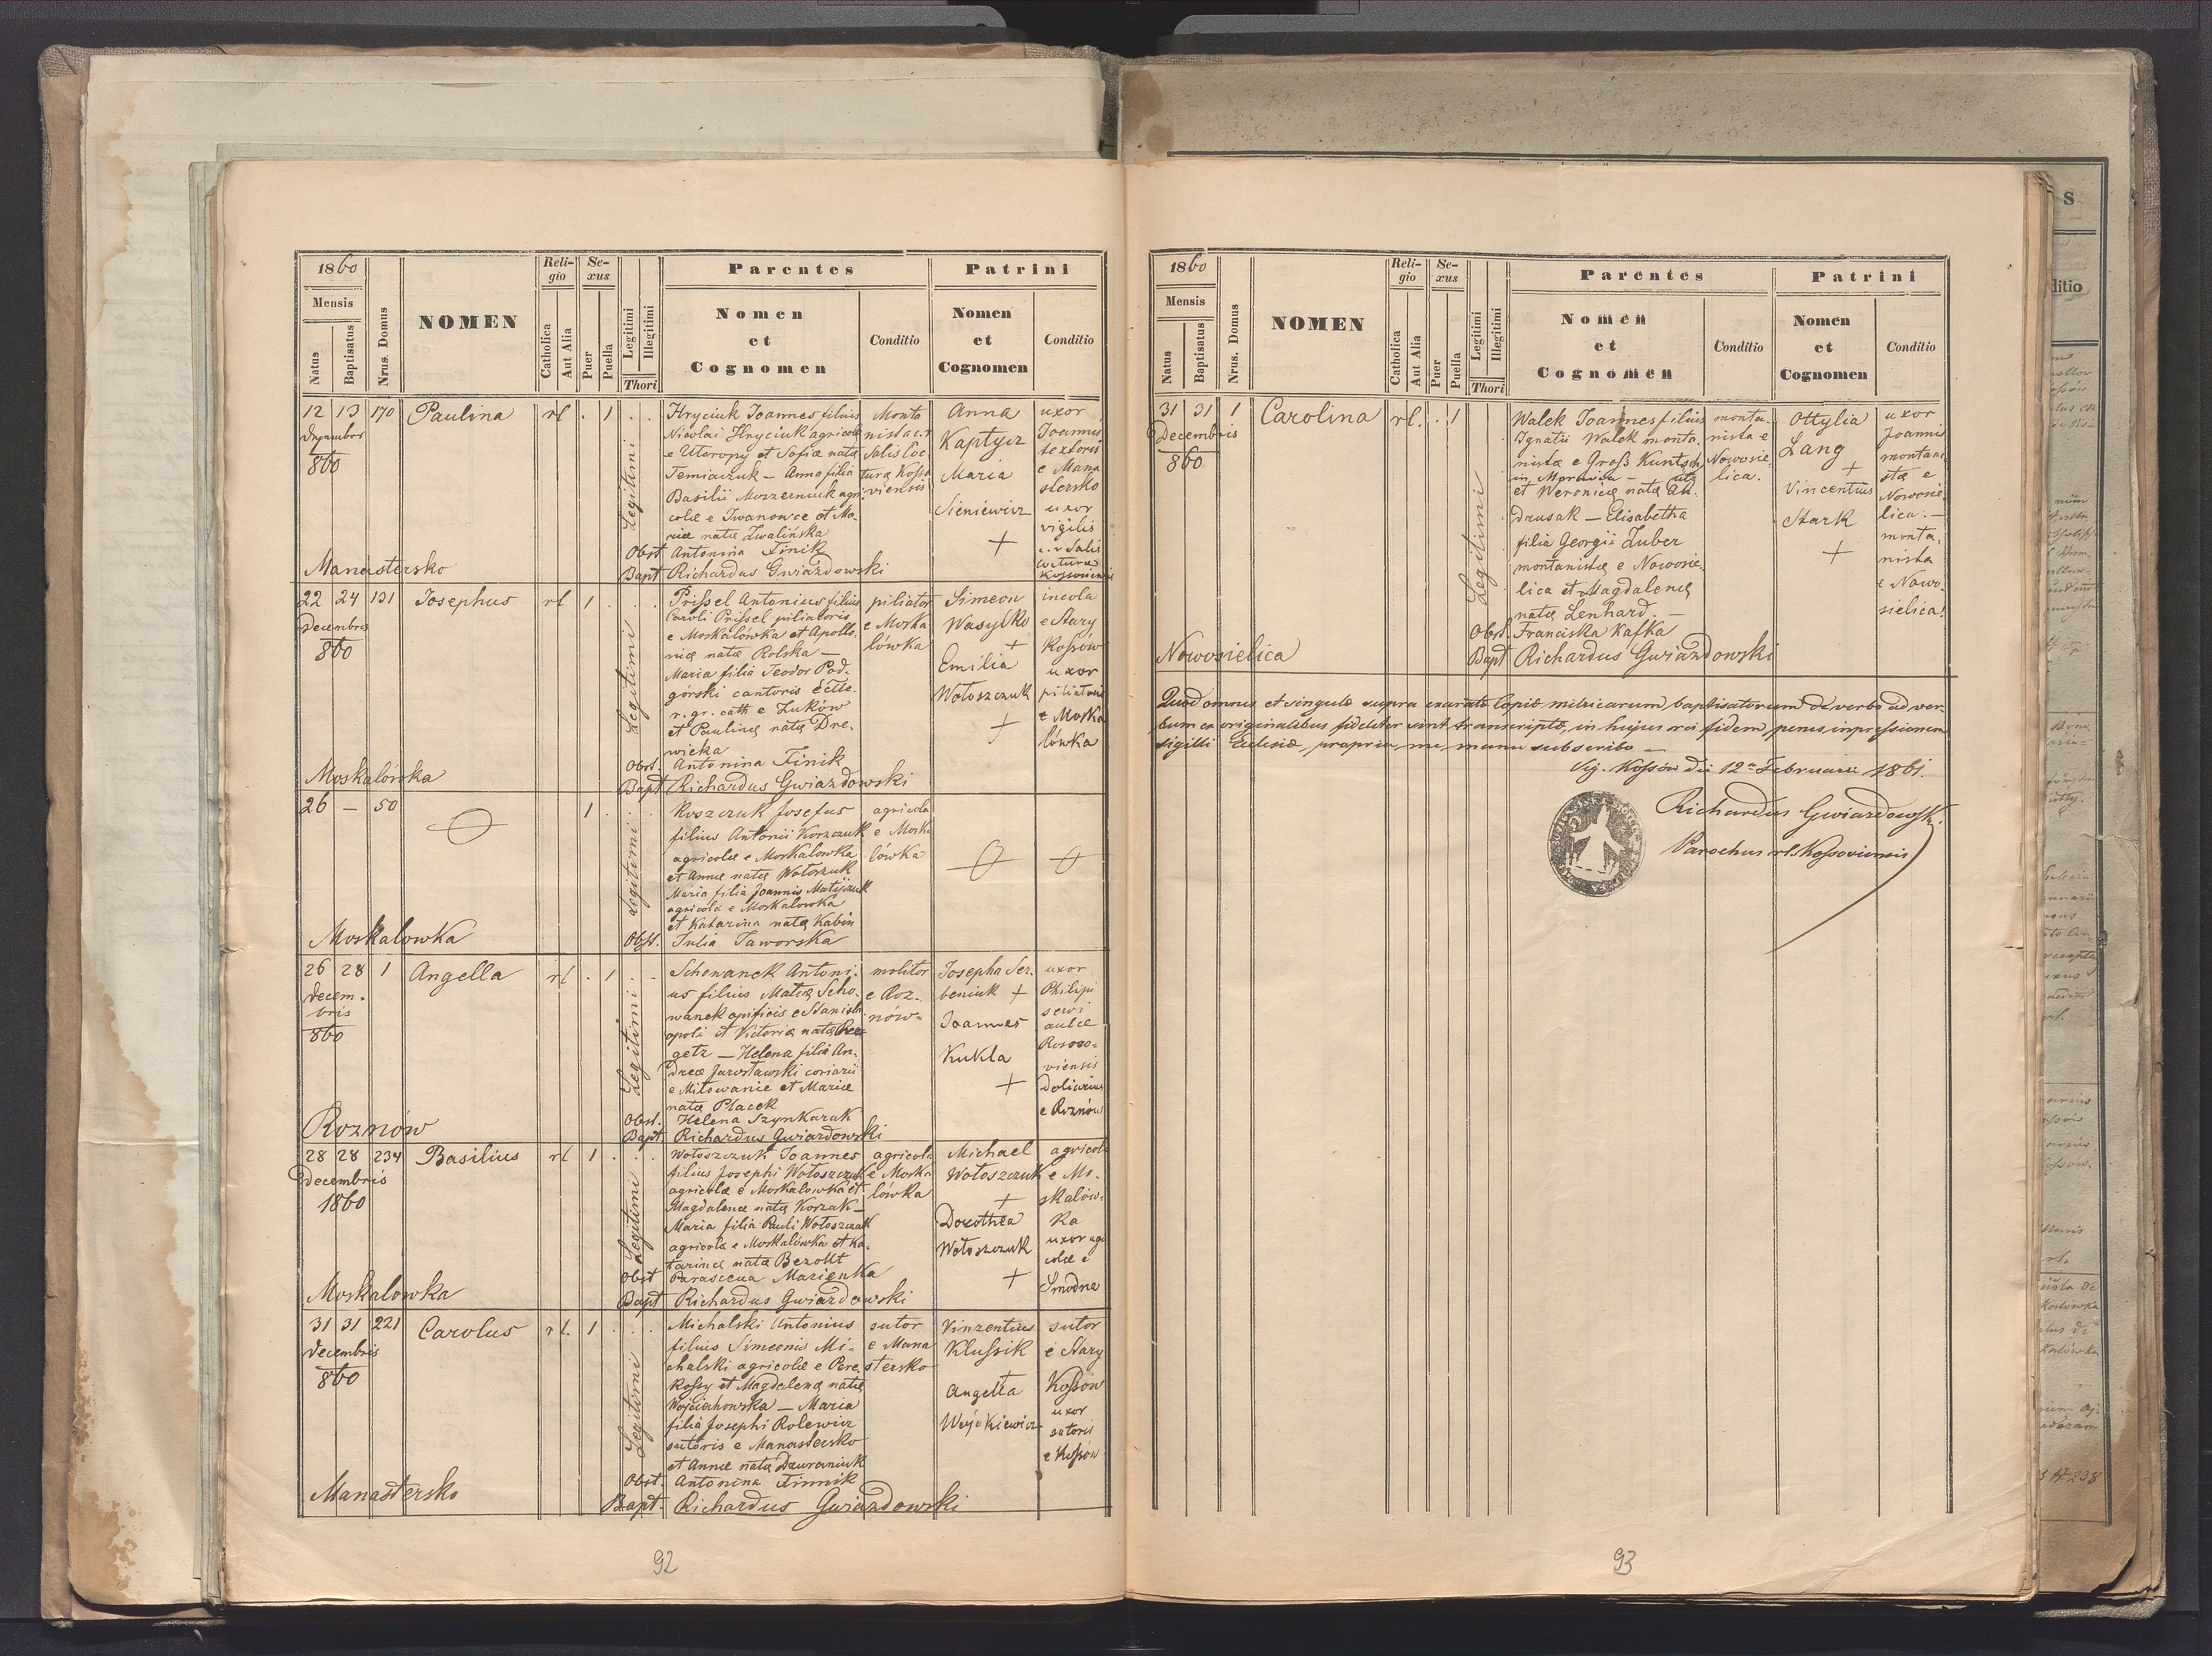 1860
Mensis
Natus
Baptisatus
Nrus. Domus
NOMEN
Reli-
gio
Catholica
Aut Alia
Se-
xus
Puer
Puella
Legitimi
Illegitimi
Thori
Parentes
Nomen
et
Cognomen
Conditio
Patrini
Nomen
et
Cognomen
Conditio
12 13 170 Paulina rl . 1 . .
Decembris
860
Legitimi
Hryciuk Joannes filius
Nicolai Hryciuk agricolæ
e Utoropy et Sofiæ natæ
Temiaczuk — Anna filia
Basilii Moszerniuk agri-
colæ e Iwanowce et Ma-
riæ natæ Zwalińska
Monta
nista c.r
Salis Coc
turæ Kosso
viensis
Anna
Kaptycz
Maria
Sieniewicz
+
uxor
Joannis
textoris
e Mana
stersko
uxor
vigilis
c.r Salis
Cocturæ
Kossoviensis
Obst Antonina Finik
Manastersko
Bapt Richardus Gwiazdowski
22 24 131 Josephus rl 1 . . .
Decembris
860
Legitimi
Prissel Antonius filius
Caroli Prissel piliatoris
e Moskalówka et Apollo-
niæ natæ Rolska —
Maria filia Teodor Pod-
górski cantoris Eccle.
r. gr. cath e Żuków
et Paulinæ natæ Dre-
wicka
piliator
e Moska
lówka
Simeon
Wasylko
+
Emilia
Wołoszczuk
+
incola
e Stary
Kossów
uxor
piliatoris
e Moska
lówka
Obst. Antonina Finik
Moskalówka
Bapt Richardus Gwiazdowski
26 — 50 1 . .
Legitimi
Koszczuk Josefus
filius Antonii Korzczuk
agricolæ e Moskalowka
et Annæ natæ Wołoszuk
Maria filia Joannis Matijczuk
agricolæ e Moskalowka
et Katarina natæ Kabin
agricola
e Moska
lówka
Moskalowka
Obst. Julia Jaworska
26 28 1 Angella rl . 1 . .
Decem-
bris
860
Legitimi
Schowanek Antoni-
us filius Matiæ Scho-
wanek opificis e Stanisla
opoli et Victoriæ natæ
getz — Helena filia An-
dreæ Jarosławski coriarii
e Miłowanie et Mariæ
natæ Placek
molitor
e Roz-
nów-
Josepha Ser-
beniuk +
Joannes
Kukla
+
uxor
Philipi
servi
aulæ
viensis
doliarius
e Roznów
Obst. Helena Szynkaruk
Roznów
Bapt. Richardus Gwiazdowski
28 28 234 Basilius rl 1 . . .
Decembris
1860
Legitimi
Wołoszczuk Joannes
filius Josephi Wołoszczuk
agricolæ e Moskalowka et
Magdalenæ natæ Korzak —
Maria filia Pauli Wołoszczuk
agricolæ e Moskalówka et Ka-
tarinæ natæ Bezoltt
agricola
e Moska
lówka
Michael
Wołoszczuk
+
Dorothea
Wołoszczuk
+
agricola
e Mo-
skalów-
ka
uxor agri
colæ e
Smodna
Obst Parascewa Marienka
Moskalowka
Bapt Richardus Gwiazdowski
31 31 221 Carolus rl. 1 . . .
Decembris
860
Legitimi
Michalski Antonius
filius Simeonis Mi-
chalski agricolæ e Pere
Kossy et Magdalenæ natæ
Wojciechowska — Maria
filia Josephi Rolewicz
sutoris e Manastersko
et Annæ natæ Dzuraniuk
sutor
e Mana
stersko
Vinzentius
Klussik
Angella
Woyókiewicz
sutor
e Stary
Kossów
uxor
sutoris
e Kossów
Obst. Antonina Finnik
Manastersko
Bapt. Richardus Gwiazdowski
92
1860
Mensis
Natus
Baptisatus
Nrus. Domus
NOMEN
Reli-
gio
Catholica
Aut Alia
Se-
xus
Puer
Puella
Legitimi
Illegitimi
Thori
Parentes
Nomen
et
Cognomen
Conditio
Patrini
Nomen
et
Cognomen
Conditio
31 31 1 Carolina rl. . 1
Decembris
860
Legitimi
Walek Joannes filius
Ignatii Walek monta-
nistæ e Gross Kuntschütz
in Moravia —
et Weronicæ natæ An-
drusak — Elisabetha
filia Georgii Zuber
montanistæ e Nowosie-
lica et Magdalenæ
natæ Lenhard. —
monta-
nista e
Nowosie
lica.
Ottylia
Lang
+
Vincentius
Stark
+
uxor
Joannis
montani
stæ e
Nowosie-
lica. —
monta-
nista
e Nowo-
sielica.
Obst. Franciska Kafka
Nowosielica
Bapt Richardus Gwiazdowski
Quod omnes et singulæ supra exaratæ Copiæ metricarum baptisatorum de verbo ad ver-
bum ex originalibus fideliter sint transcriptæ, in hujus rei fidem penes impressionem
sigilli Ecclesiæ, propria me manu subscribo —
Sig. Kossów die 12a Februarii 1861.
Richardus Gwiazdowski
Parochus rl. Kossoviensis
93
S
ditio